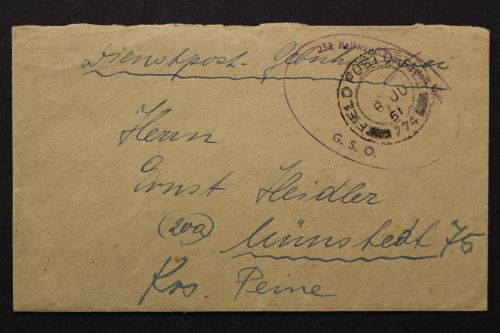 Dienstpost - Gebührenfrei
253. Railway
G. S. O.
FIELD POST OFFICE
8 JU 51
774
Herrn
Ernst Heidler
(20a) Münstedt 75
Krs. Peine